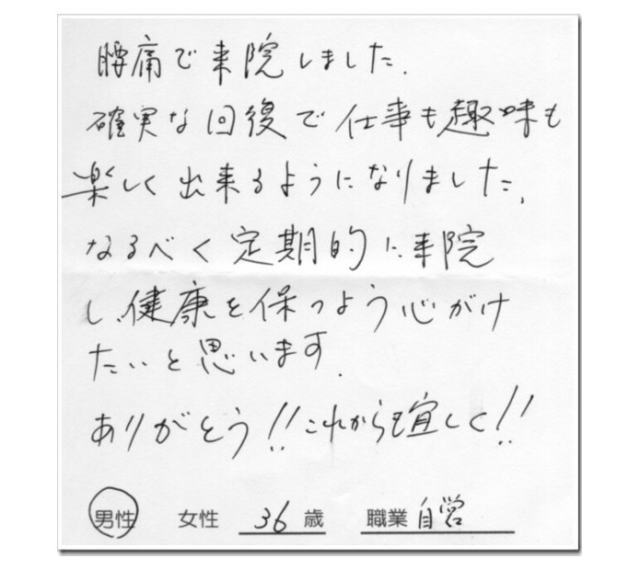 腰痛で来院しました.
確実な回復で仕事も趣味も
楽しく出来るようになりました.
なるべく定期的に来院
し、健康を保つよう心がけ
たいと思います.
ありがとう!!これからも宜しく!!
男性 女性 36歳 職業 自営